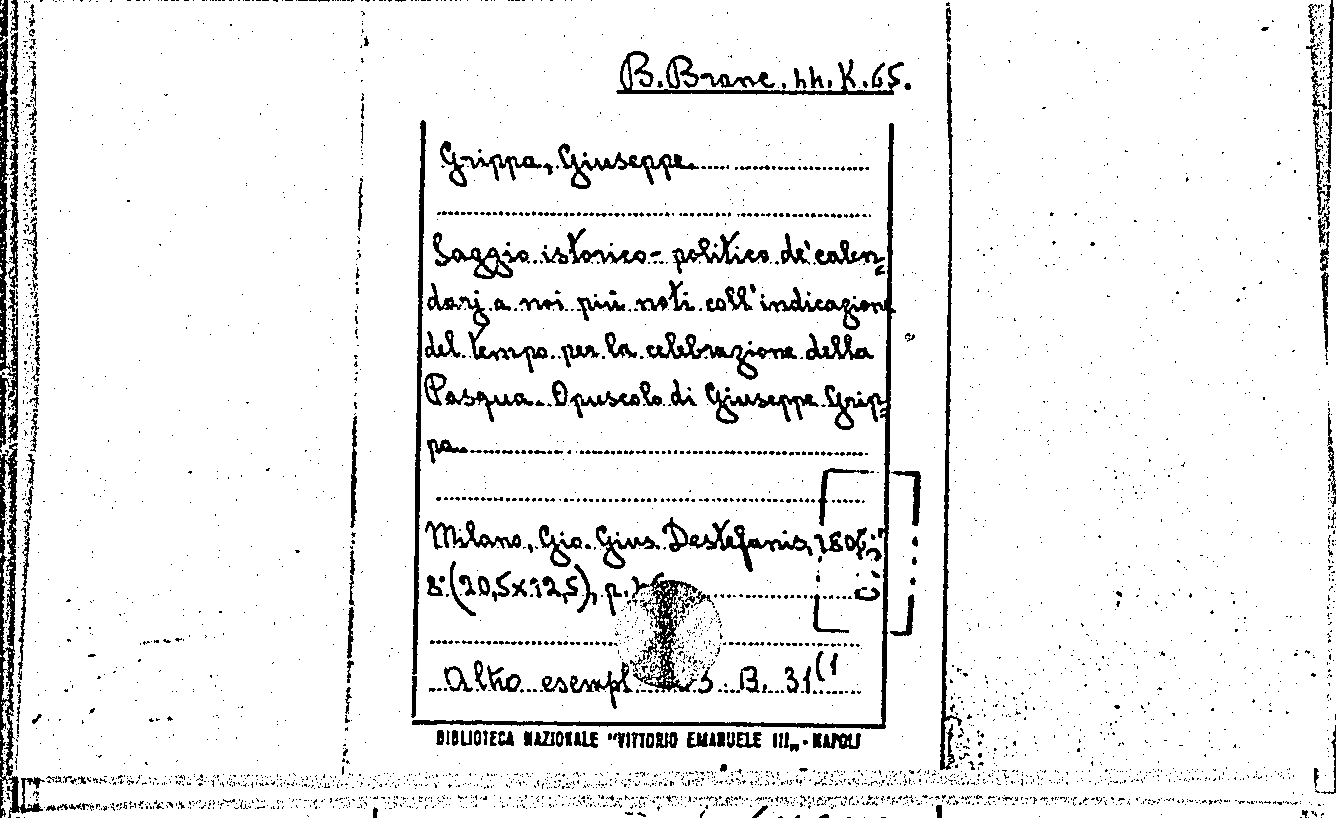 B. Branc. hh. K. 65.
Grippa, Giuseppe
Saggio istorico-politico de' calen=
darj a noi più noti coll'indicazione
del tempo per la celebrazione della
Pasqua. Opuscolo di Giuseppe Grip=
pa
Milano, Gio. Gius. Destefanis,
8° (20,5x12,5), p.
Altro esempl B. 31(1
BIBLIOTECA NAZIONALE "VITTORIO EMANUELE III" - NAPOLI